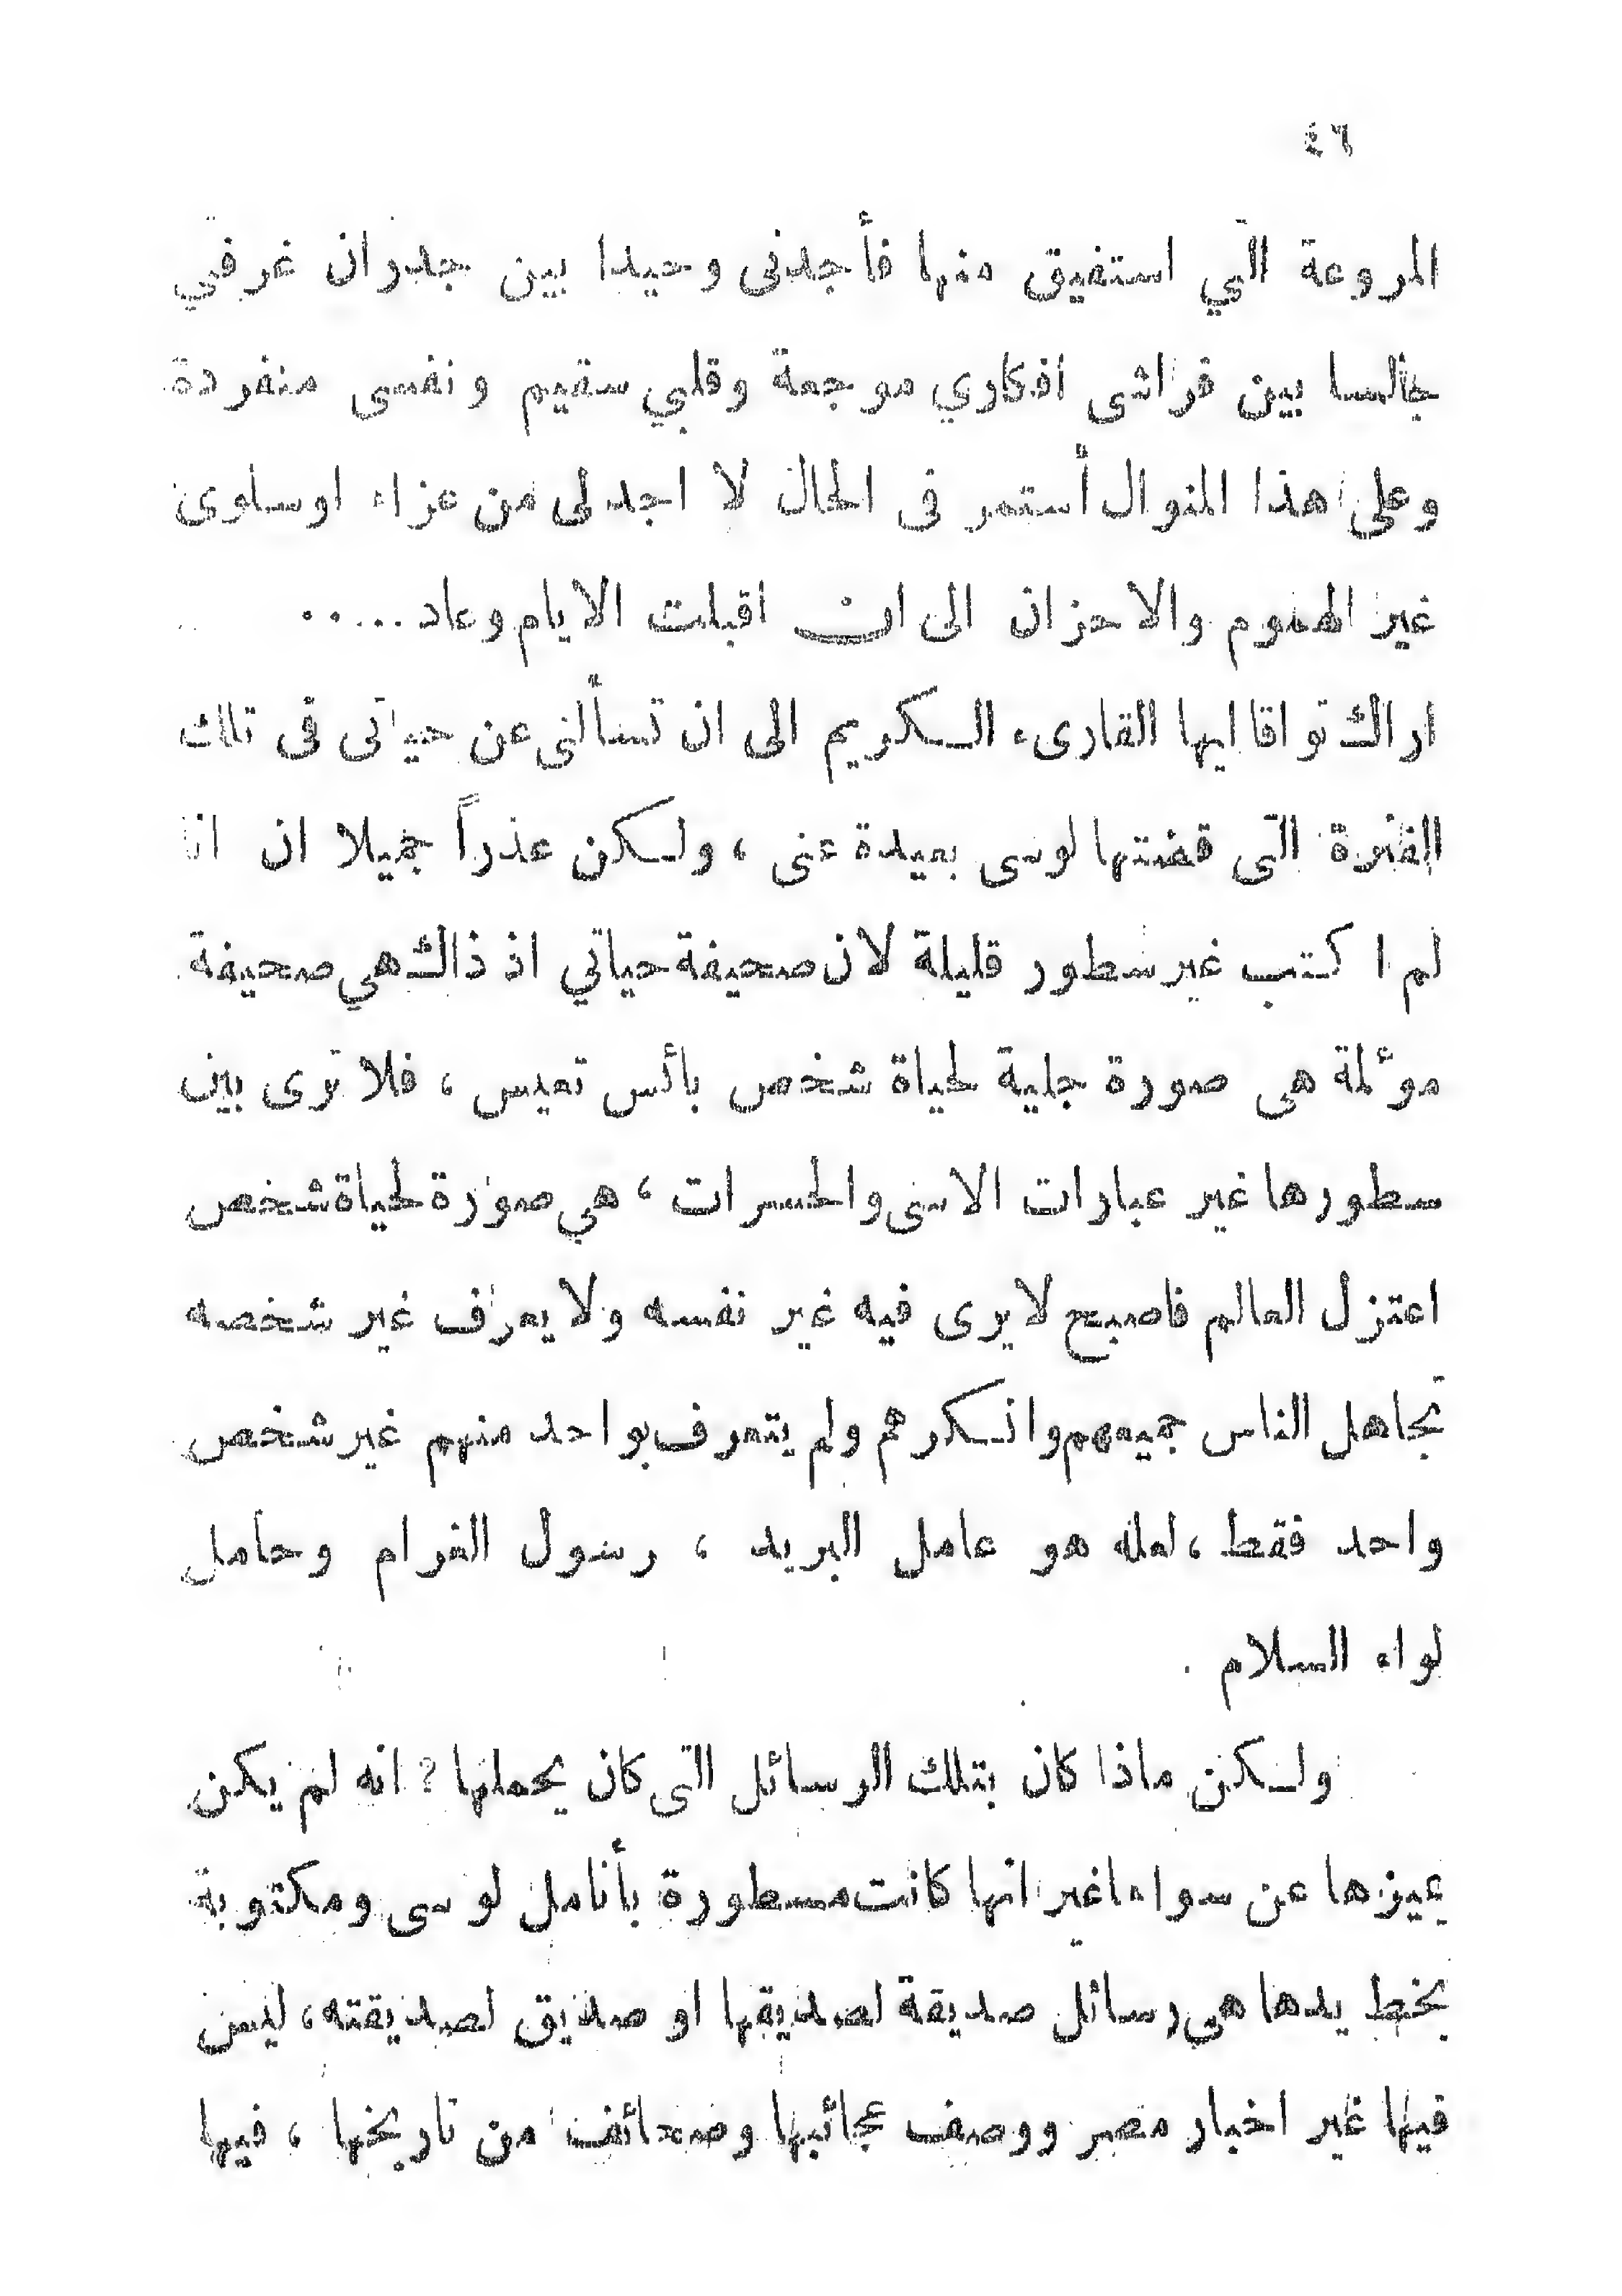 ٤٦
المروعة التي استفيق منها فأجدنى وحيدا بين جدران غرفتي
جالسا بين فراشى افكاري موجعة وقلبي سقيم ونفسى منفردة
وعلى هذا المنوال أستمر فى الحال لا اجد لى من عزاء او سلوى
غير الهموم والاحزان الى ان اقبلت الايام وعاد .....
اراك تواقا ايها القارىء الكريم الى ان تسألنى عن حياتى فى تلك
الفترة التى قضتها لوسى بعيدة عنى ، ولكن عذراً جميلا ان انا
لم اكتب غير سطور قليلة لان صحيفة حياتي اذ ذاك هي صحيفة
مؤلمة هى صورة جلية لحياة شخص بائس تعيس ، فلا ترى بين
سطورها غير عبارات الاسى والحسرات ، هي صورة لحياة شخص
اعتزل العالم فاصبح لا يرى فيه غير نفسه ولا يعرف غير شخصه
تجاهل الناس جميعهم وانكرهم ولم يتعرف بواحد منهم غير شخص
واحد فقط ، لعله هو عامل البريد ، رسول الغرام وحامل
لواء السلام .
ولكن ماذا كان بتلك الرسائل التى كان يحملها ؟ انه لم يكن
يميزها عن سواها غير انها كانت مسطورة بأنامل لوسى ومكتوبة
بخط يدها هي رسائل صديقة لصديقها او صديق لصديقته ، ليس
فيها غير اخبار مصر ووصف عجائبها وصحائف من تاريخها ، فيها